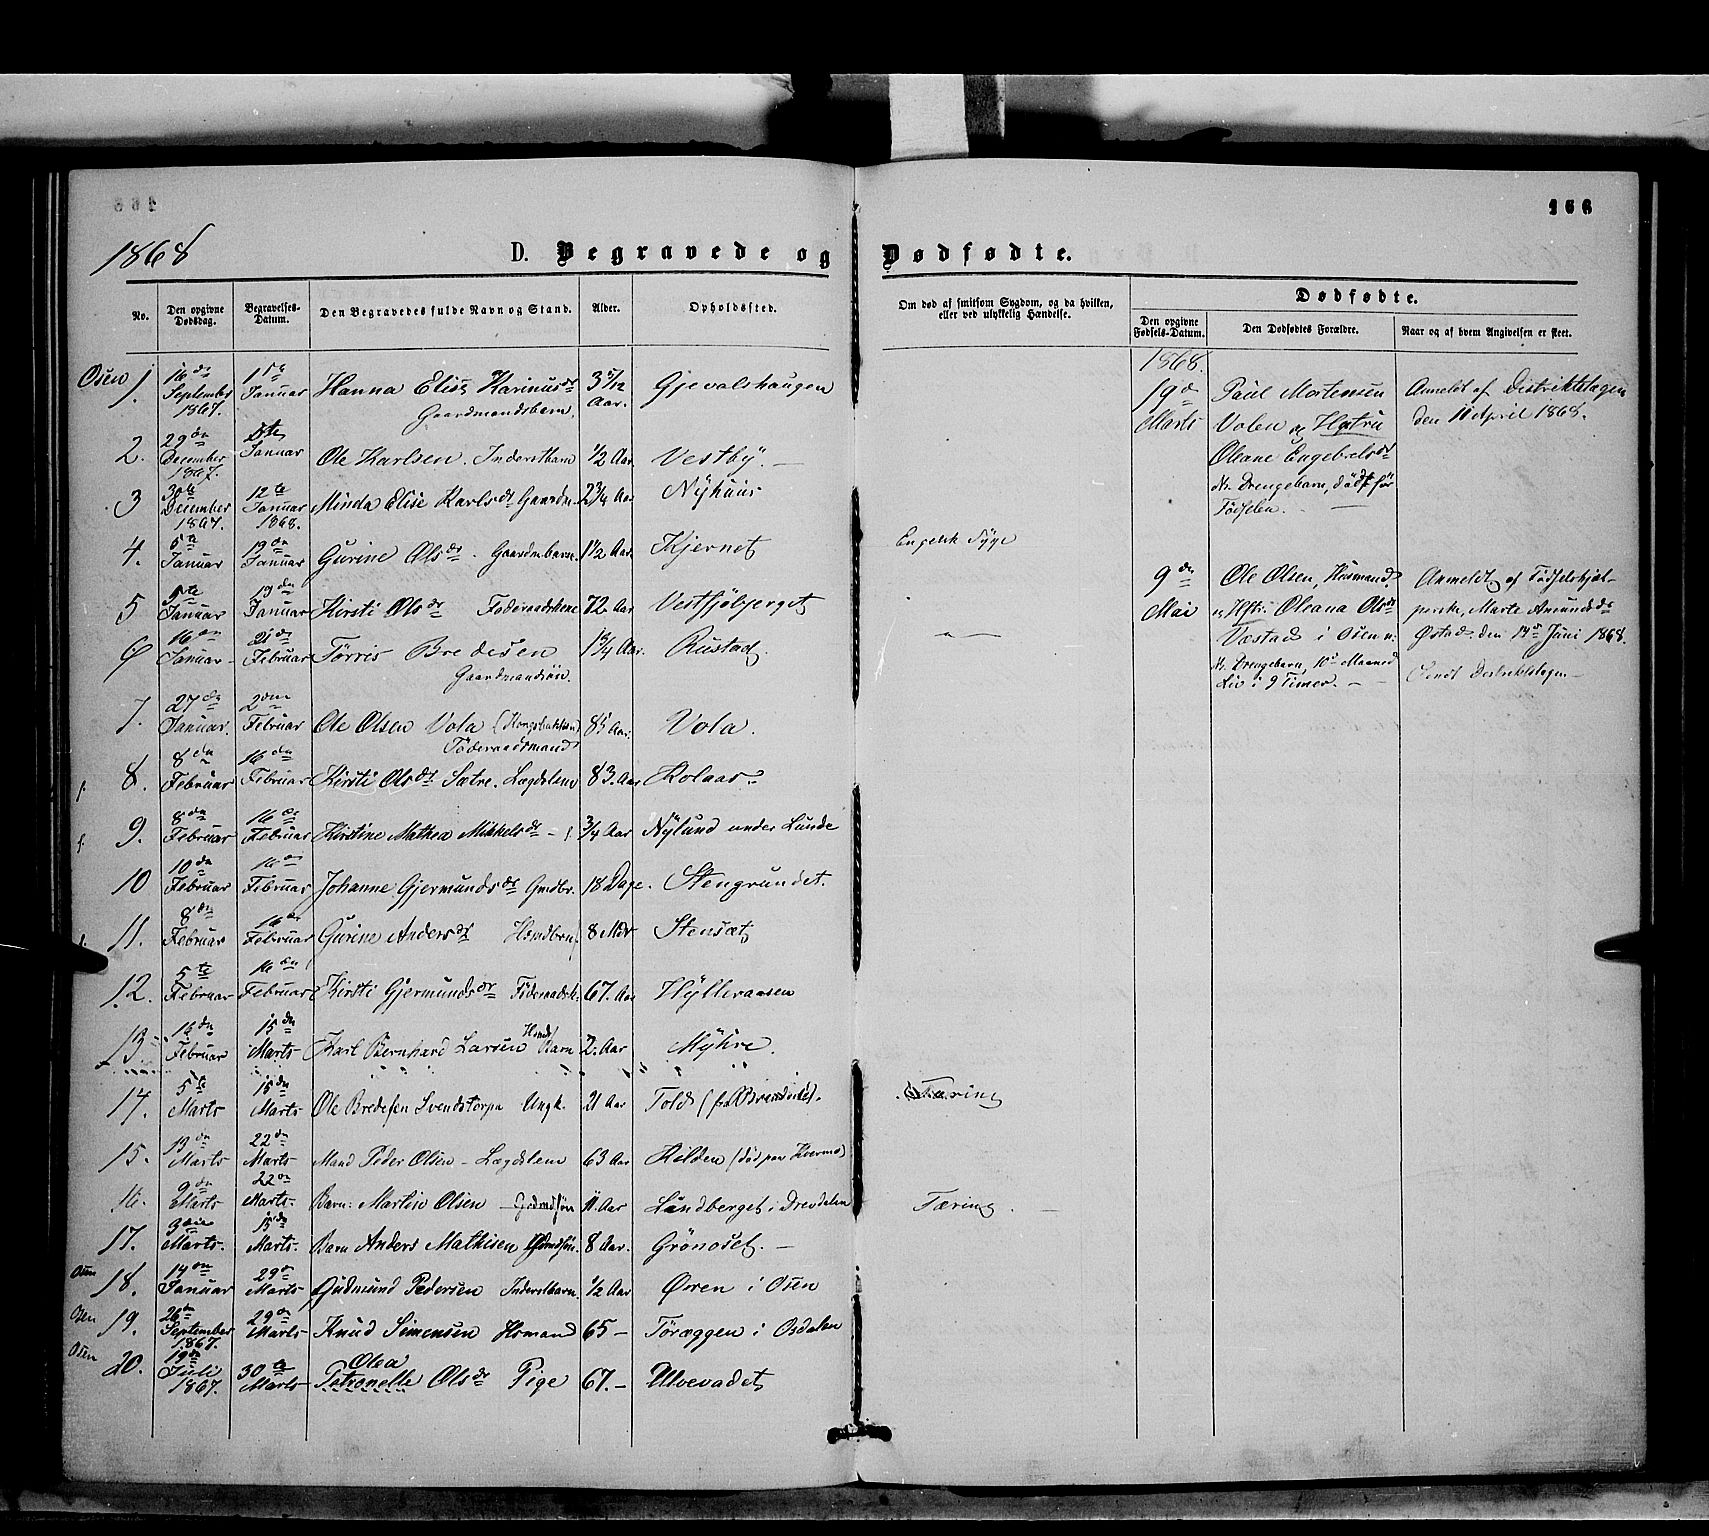 166
1868
D. Begravede og Dødfødte.
No. Den opgivne Dødsdag. Begravelses-Datum. Den Begravedes fulde Navn og Stand. Alder. Opholdssted. Om død af smitsom Sygdom, og da hvilken, eller ved ulykkelig Hændelse. Dødfødte.
Den opgivne Fødsels-Datum. Den Dødfødtes Forældre. Naar og af hvem Angivelsen er skeet.
Osen 1. 16de September 1867. 1ste Januar Hanna Elise Karinusdr Gaardmandsbarn. 3 5/12 Aar. Gjevalshaugen
2. 29de December 1867. 5te Januar Ole Karlsen. Inderstbarn 1/2 Aar Vestby. —
3 30te December 1867. 12te Januar 1868. Minda Elise Karlsdr Gaardm. 2 3/4 Aar Nyhuus
4. 5te Januar 19de Januar Gurine Olsdr. Gaardmbarn. 1 1/2 Aar. Kjernet Engelsk Syge
5 Januar 19de Januar Kirsti Olsdr Føderaadskone 72. Aar Vestsjøbjerget
6 16de Januar 21de Februar Tørris Bredesen Gaardmandsøn. 1 3/4 Aar. Rustad. — " —
7. 27de Januar. 2den Februar Ole Olsen Vola (Kongsbakken) Føderaadsmand 85 Aar. Vola.
8. 8de Februar 16de Februar Kirsti Olsdr Sætre. Lægdslem 83. Aar Kolaas.
9. 8de Februar 16de Februar Kirstine Mathea Mikkelsdr 3/4 Aar Nylund under Lunde
10 10de Februar 16de Februar Johanne Gjermundsdr Gmdbr. 18 Dage. Stengrundet.
11. 8de Februar 16de Februar Gurine Andersdr Hsmdbrn 8 Mdr Stensæt
12. 5te Februar 16de Februar Kirsti Gjermundsdr Føderaadsk. 67. Aar Hylleraasen
13. 16de Februar 15de Marts Karl Bernhard Larsen Hsmds Barn 2. Aar Myhre.
14. 5te Marts 15de Marts Ole Bredesen Svendstorpa Ungk. 21 Aar Told Tæring
15. 19de Marts 22de Marts Mand Peder Olsen – Lægdslem 63 Aar Kilden
16. 9de Marts 22de Marts. Barn: Martin Olsen 11 Aar Lundberget i Drevdalen Tæring. —
17. 9de Marts. 15de Marts. Barn Anders Mathisen 8 Aar. Grønoset. —
Osen 18. 14de Januar 29de Marts Gudmund Pedersen Inderstbarn. 1/2 Aar Øren i Osen
Osen 19. 26de September 1867. 29de Marts Knud Simensen Hsmand 65 – Tøræggen i Osdalen
Osen 20. 19de Juli 1867. 30te Marts Olea Petronelle Olsdr Pige 67. – Ulvevadet
1868.
19de Marts Paul Mortensen Volen og Hustru Oleane Engebretsdr Dr. Drengebarn, død før Fødselen. — Anmeldt af Distriktslægen den 11 April 1868.
9de Mai Ole Olsen, Husmand, og Hstr: Oleana Olsdr Væstad i Osen Drengebarn, Maaned Liv i 9 Timer. — Anmeldt af Fødselshjælperske, Marte Amundsdr Østad, den 14de Juni 1868. Sendt Distriktslægen —